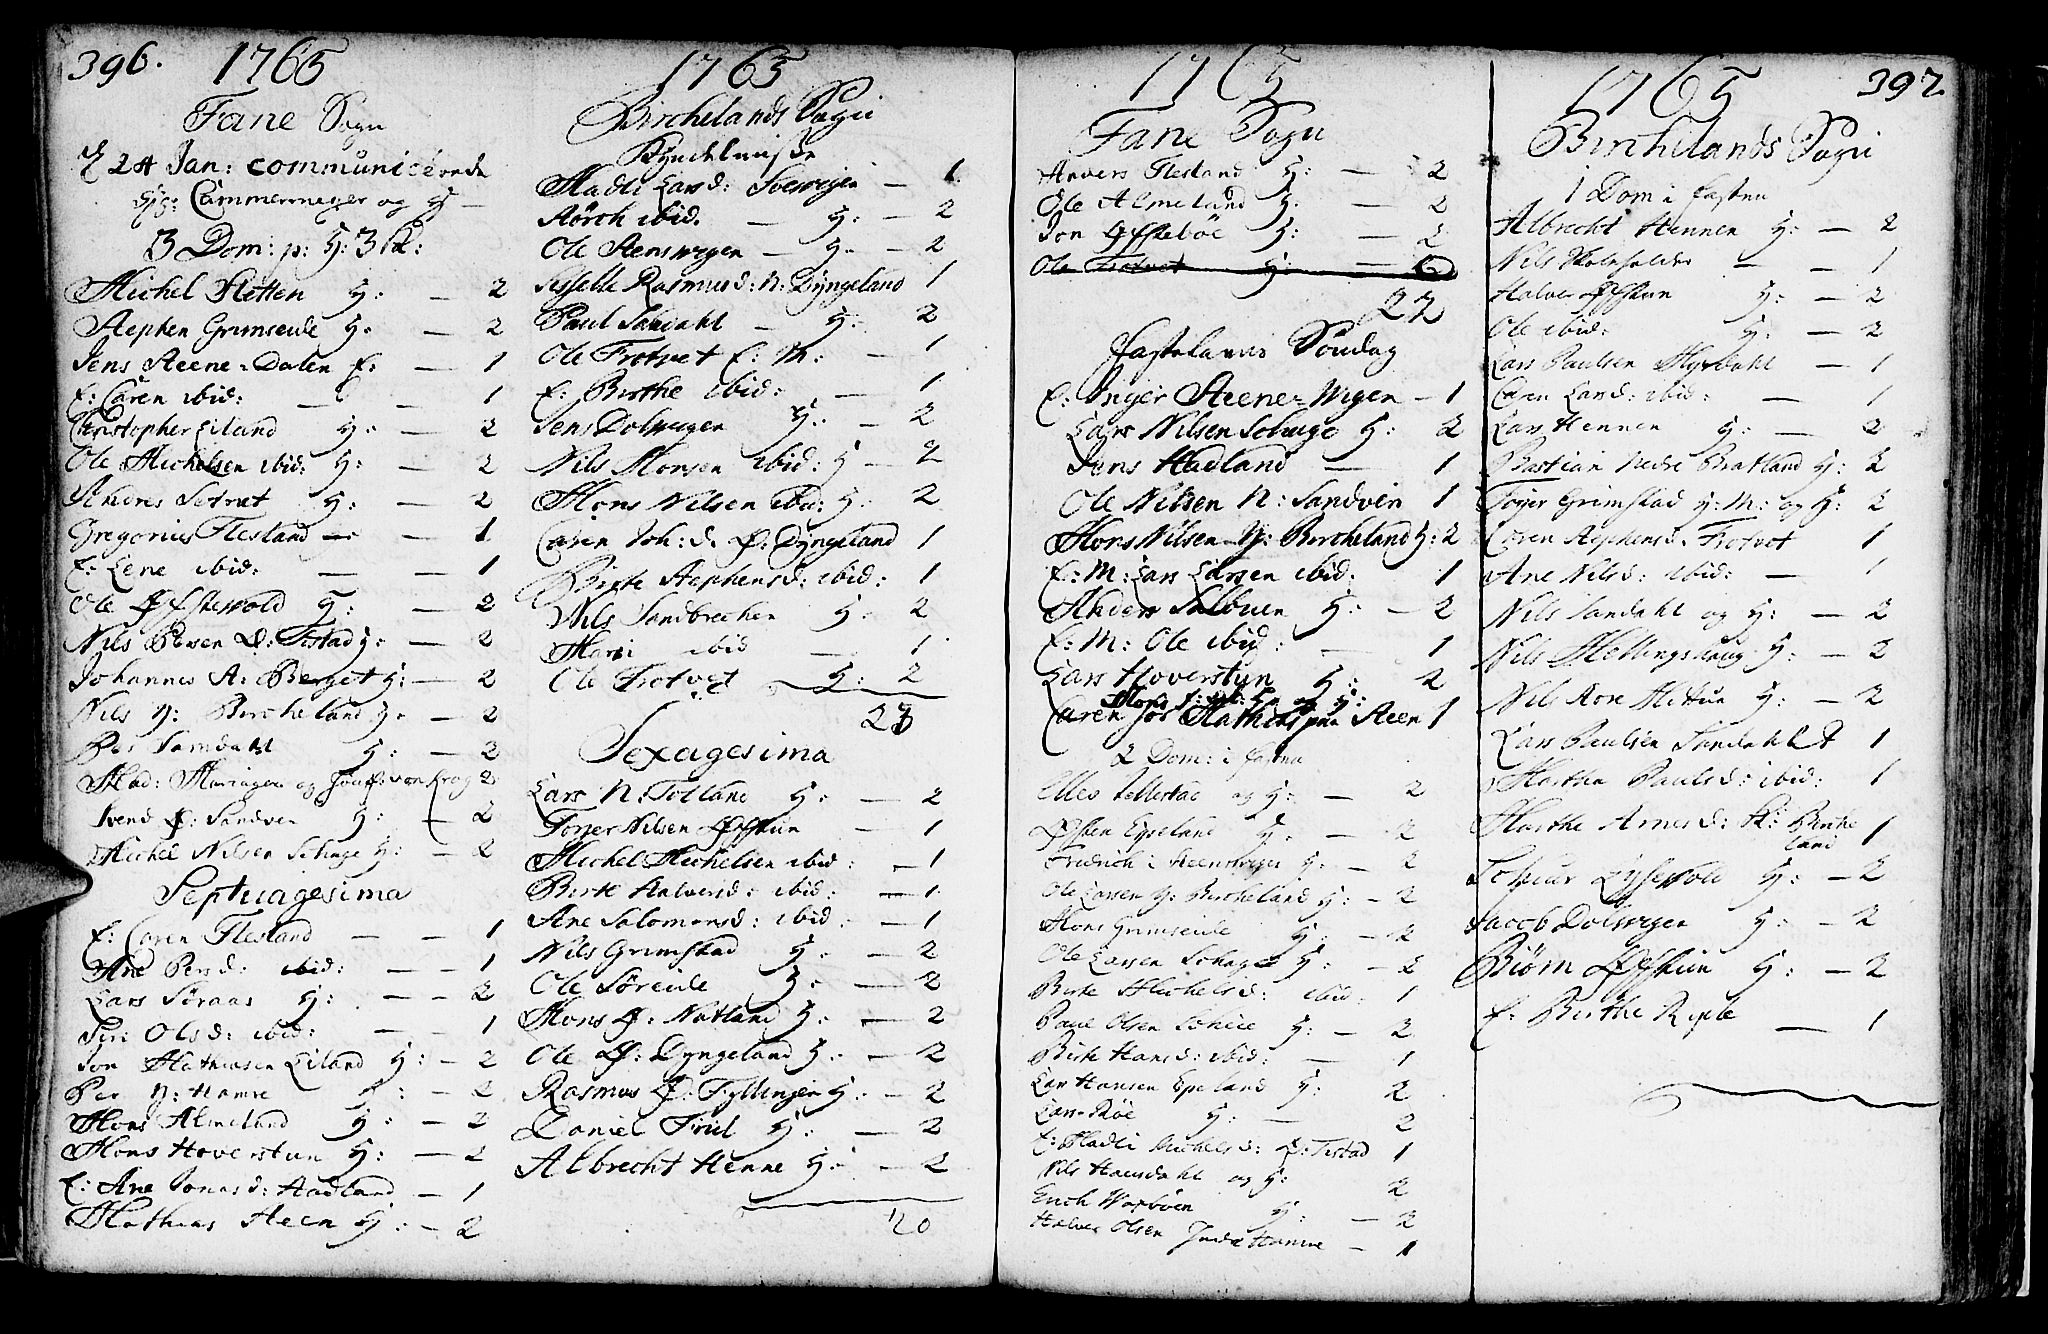 396. 1765
Fane Sogn
24 Jan: communicerede
Cammermeyer og H
3 Dom: p: H: 3 K:
Michel Sletten H: — 2
Stephen Grimseide H: — 2
Jens Steene-Dalen E: — 1
E: Caren ibid: — 1
Christopher Eiland H: — 2
Ole Michelsen ibid: H: — 2
Anders Totvet H: — 2
Gregorius Flesland — 1
E: Lene ibid: — 1
Ole Østevold H: — 2
Nils Persen Ø: Tistad H: — 2
Johannes St: Berget H: — 2
Nils N: Bircheland H: — 2
Per Samdahl H: — 2
Mad: og von Krog 2
Svend Ø: Sandven H: — 2
Michel Nilsen H: — 2
Septuagesima
E: Caren Flesland — 1
Ane Persd: ibid: — 1
Lars Søraas H: — 2
Siri Olsd: ibid: — 1
Jon Mathiasen Eiland H: — 2
Per N: Hamre H: — 2
Mons Almeland H: — 2
Mons Hoverstun H: — 2
E: Ane Jonasd: Hadland — 1
Mathias Steen H: — 2
1765
Birchelands Sogn
Kyndelmisse
Madli Larsd: — 1
Størch ibid. — H: — 2
Ole Stenswigen — H: — 2
Sisselle Rasmusd: N: Dyngeland 1
Paul Samdahl — H: 2
Ole Trotvet E: M: — 1
E: Birthe ibid: — 1
Jens Dolwigen H: — 2
Nils Monsen ibid: H — 2
Mons Nilsen ibid: H: 2
Caren Joh:d. Ø: Dyngeland 1
Birte Stephensd: ibid: 1
Nils Sandbrechen H: 2
Mari ibid — 1
Ole Trotvet H: 2
23
Sexagesima
Lars N: Totland H: — 2
Torjer Nilsen Øfstun — 1
Michel Michelsen ibid: — 1
Birte Halversd: ibid: — 1
Ane Salomonsd: ibid: — 1
Nils Grimstad H: — 2
Ole Søreide H: — 2
Mons Ø: Natland H: — 2
Ole Ø: Dyngeland H: — 2
Rasmus Ø: Fyllingen H: — 2
Daniel Friil H: — 2
Albrecht Henne H: — 2
20
1765
Fane Sogn
Anders Flesland H: — 2
Ole Almeland H: — 2
Jon H: — 2
Ole Trotvet H: —
27
Fastelavns Søndag
E: Inger Steene-Wigen — 1
Lars Nilsen H: 2
Jens Hadland — 1
Ole Nilsen N: Sandven 1
Mons Nilsen Y: Bircheland H: 2
E: M: Lars Larsen ibid: 1
Anders Salbuen H: — 2
E: M: Ole ibid: — 1
Lars Hoverstun H: 2
Mons og H:
Caren Steen 1
2 Dom: i fasten
Elles og H: — 2
Østen Espeland H: — 2
Fredrich i Steenswigen H: — 2
Ole Larsen Y: Bircheland H: — 2
Mons Grimseide H: — 2
Ole Larsen H: — 2
Birte Michelsd: ibid: 1
Paul Olsen H: — 2
Birte Hansd: ibid: — 1
Lars Hansen Espeland H: 2
Lars Røe H: — 2
E: Madli Michelsd: Ø: Tistad 1
Nils Hamdahl og H: 2
Erich H: — 2
Halver Olsen Hamre — 1
1765 397.
Birchelands Sogn
1 Dom i fasten
Albrecht Hennen H: — 2
Nils — 1
Halver Øfstun H: — 2
Ole ibid: H: — 2
Lars Paulsen Myrdahl — 1
Caren Larsd: ibid: — 1
Lars Hennen H: — 2
Bastian Nedre Bratland H: 2
Torjer Grimstad H: M: og H: 2
Caren Stephensd: Trotvet 1
Ane Nilsd: ibid: — 1
Nils Sandahl og H: — 2
Nils Mellingshaug H: — 2
Nils Store Mittun H: — 2
Lars Paulsen Sandahl 1
Martha Paulsd: ibid: 1
Marthe Arnesd: Birche
land 1
Lyssevold H: — 2
Jacob Dolwigen H: — 2
Biørn Øfstun H: — 2
E: Birthe — 1